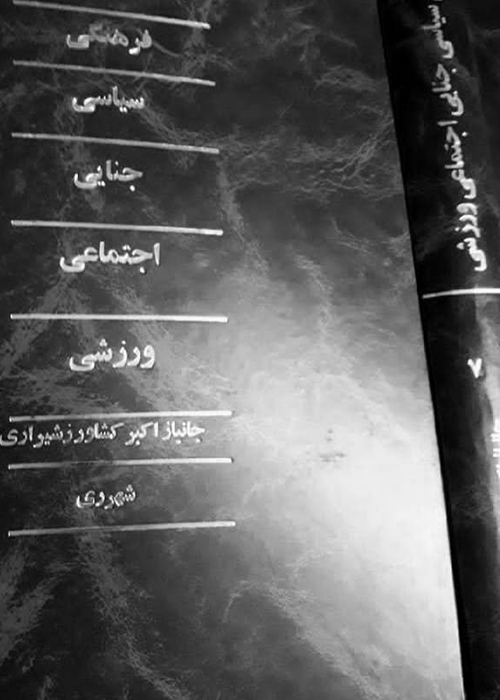 فرهنگی
سیاسی
جنایی
اجتماعی
ورزشی
جانباز اکبر کشاورز شیرازی
شهرری
سیاسی جنایی اجتماعی ورزشی
۷